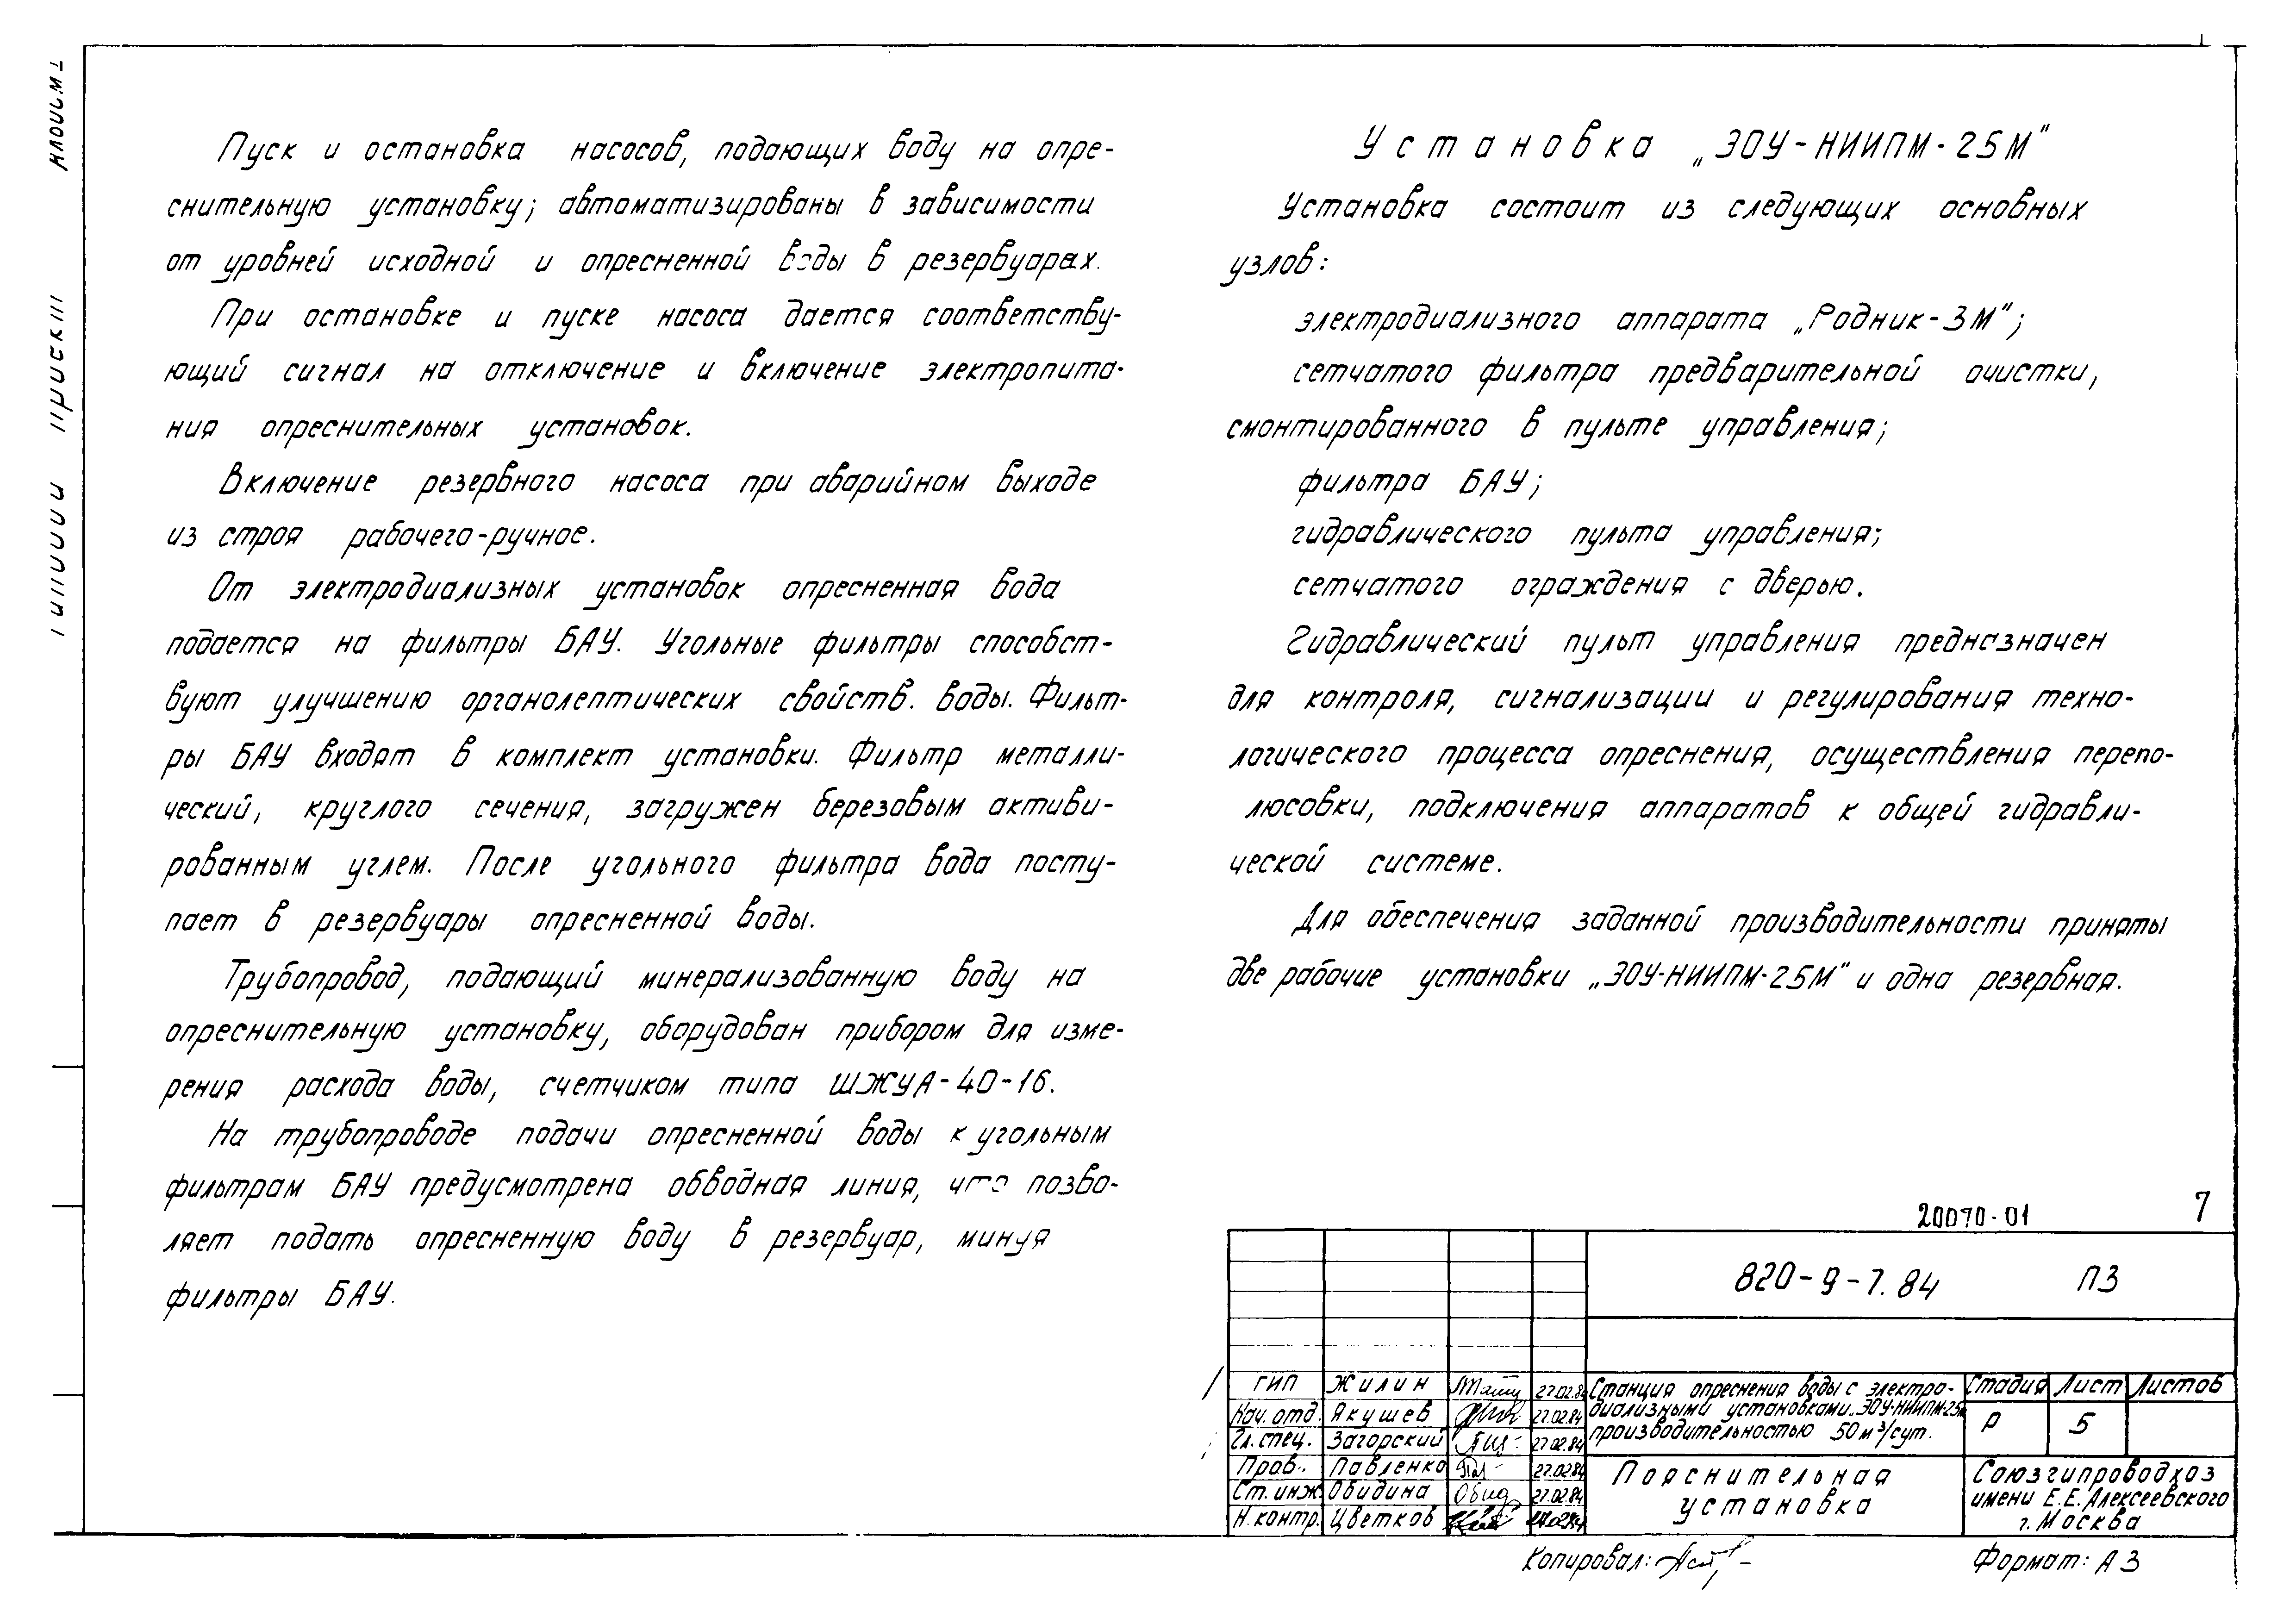 Пуск и остановка насосов, подающих воду на опре-
снительную установку; автоматизированы в зависимости
от уровней исходной и опресненной воды в резервуарах.
При остановке и пуске насоса дается соответству-
ющий сигнал на отключение и включение электропита-
ния опреснительных установок.
Включение резервного насоса при аварийном выходе
из строя рабочего-ручное.
От электродиализных установок опресненная вода
подается на фильтры БАУ. Угольные фильтры способст-
вуют улучшению органолептических свойств. воды. Фильт-
ры БАУ входят в комплект установки. Фильтр металли-
ческий, круглого сечения, загружен березовым активи-
рованным углем. После угольного фильтра вода посту-
пает в резервуары опресненной воды.
Трубопровод, подающий минерализованную воду на
опреснительную установку, оборудован прибором для изме-
рения расхода воды, счетчиком типа ШЖУА-40-16.
На трубопроводе подачи опресненной воды к угольным
фильтрам БАУ предусмотрена обводная линия, что позво-
ляет подать опресненную воду в резервуар, минуя
фильтры БАУ.
Установка „ЭОУ-НИИПМ-25М"
Установка состоит из следующих основных
узлов:
электродиализного аппарата „Родник-3М";
сетчатого фильтра предварительной очистки,
смонтированного в пульте управления;
фильтра БАУ;
гидравлического пульта управления;
сетчатого ограждения с дверью.
Гидравлический пульт управления предназначен
для контроля, сигнализации и регулирования техно-
логического процесса опреснения, осуществления перепо-
люсовки, подключения аппаратов к общей гидравли-
ческой системе.
Для обеспечения заданной производительности приняты
две рабочие установки „ЭОУ-НИИПМ-25М" и одна резервная.
20070-01 7
820-9-7.84 ПЗ
ГИП Жилин 27.02.84
Нач. отд. Якушев 27.02.84
Гл. спец. Загорский 27.02.84
Пров. Павленко 27.02.84
Ст. инж. Обидина Обид 27.02.84
Н. контр. Цветков
Станция опреснения воды с электро-
диализными установками „ЭОУ-НИИПМ-25М
производительностью 50 м³/сут.
Стадия Лист Листов
Р 5
Пояснительная
установка
Союзгипроводхоз
имени Е.Е. Алексеевского
г. Москва
Копировал:
Формат: А3